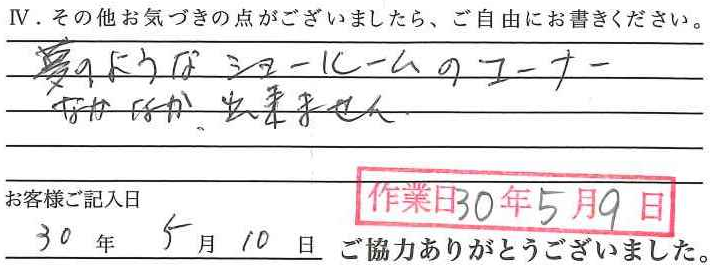 Ⅳ．その他お気づきの点がございましたら、ご自由にお書きください。
夢のようなショールームのコーナー
なかなか、出来ません。
お客様ご記入日
作業日30年5月9日
30年5月10日 ご協力ありがとうございました。